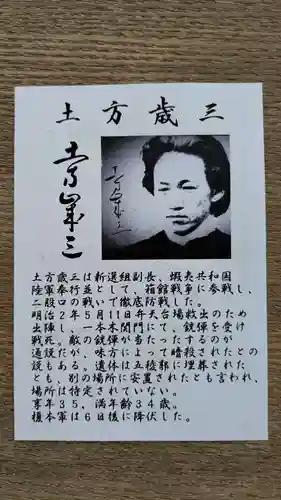 土方歳三
土方歳三
土方歳三
土方歳三は新選組副長、蝦夷共和国
陸軍奉行並として、箱館戦争に参戦し、
二股口の戦いで徹底防戦した。
明治2年5月11日弁天台場救出のため
出陣し、一本木関門にて、銃弾を受け
戦死。敵の銃弾が当たったするのが
通説だが、味方によって暗殺されたとの
説もある。遺体は五稜郭に埋葬された
とも、別の場所に安置されたとも言われ、
場所は特定されていない。
享年35、満年齢34歳。
榎本軍は6日後に降伏した。